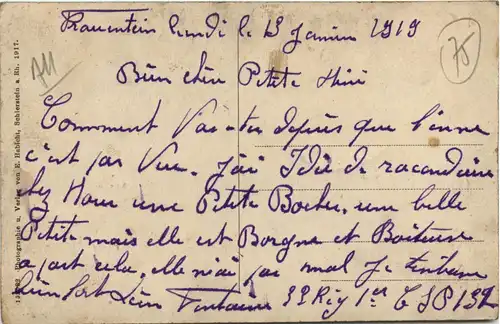 Frauenstein lundi le 13 Janvier 1919
75
All
Bien chère Petite Nini
Commment Vas-tu depuis que l'on ne
c'est pas Vue. J'ai Idée de raconduire
chez Nous une Petite Boche. une belle
Petite mais elle est Borgne et Boiteuse
a part cela, elle n'ai pas mal je t'embrasse
bien fort Léon Fontaine 32 Rég 1er C SP 132
Photographie u. Verlag von E. Habicht, Schierstein a. Rh. 1917.